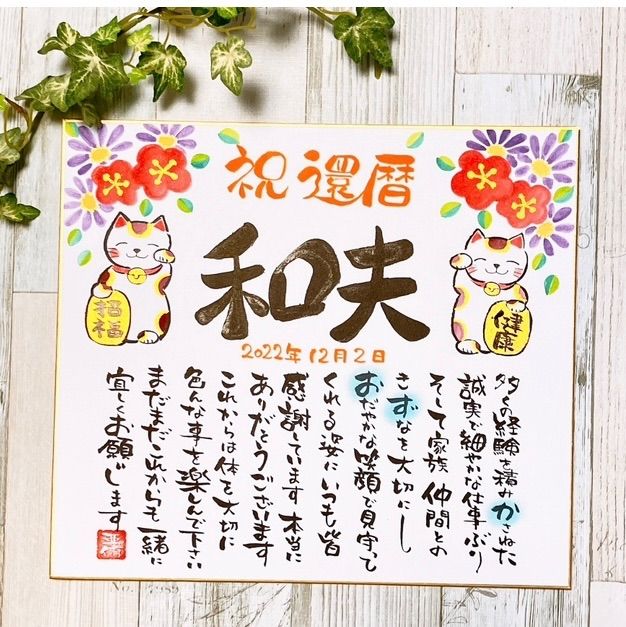 祝還暦
和夫
2022年12月2日
招福
健康
多くの経験を積みかさねた
誠実で細やかな仕事ぶり
そして家族 仲間との
きずなを大切にし
おだやかな笑顔で見守って
くれる姿にいつも皆
感謝しています 本当に
ありがとうございます
これからは体を大切に
色んな事を楽しんで下さい
まだまだこれからも一緒に
宜しくお願いします